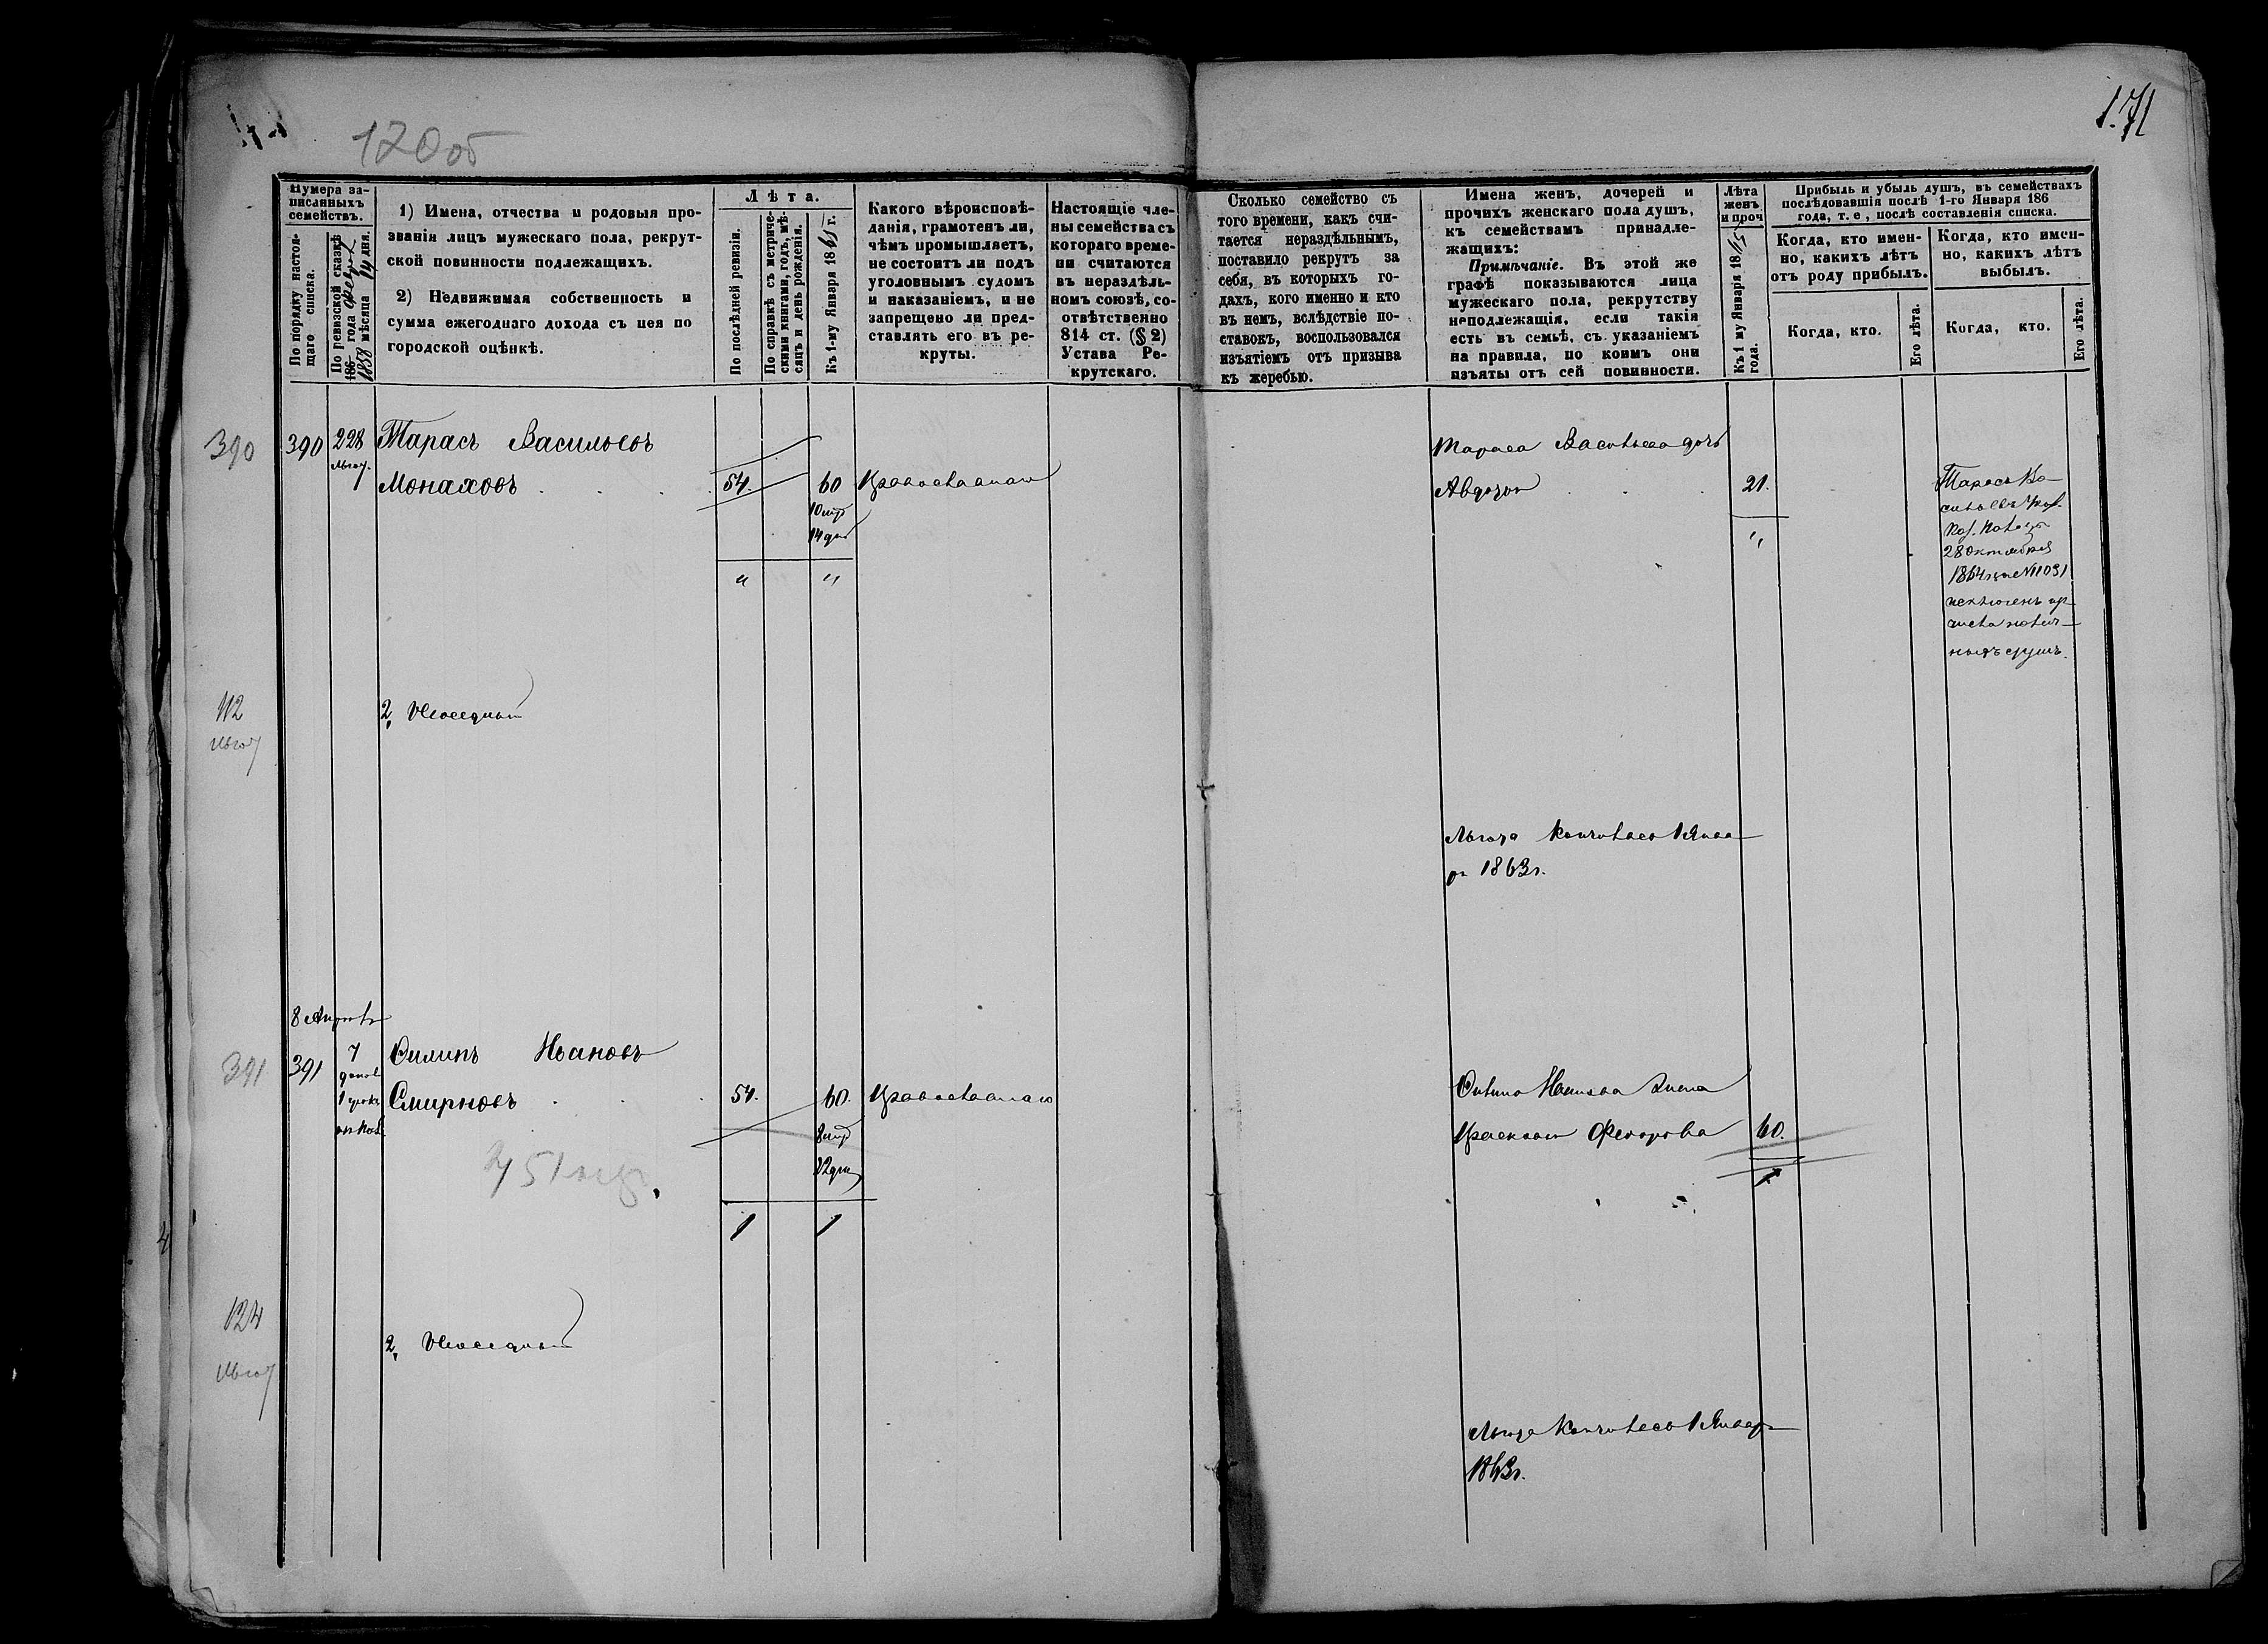 170об
171
Нумера записанныхъ семействъ.
По порядку настоящаго списка.
По ревизской сказкѣ 186 года 1858 мѣсяца дня.
1) Имена, отчества и родовыя про-
званія лицъ мужескаго пола, рекрут-
ской повинности подлежащихъ.
2) Недвижимая собственность и
сумма ежегоднаго дохода съ нея по
городской оцѣнкѣ.
Лѣта.
По послѣдней ревизіи.
По справкѣ съ метриче-
скими книгами, годъ, мѣ-
сяцъ и день рожденія.
Къ 1-му Января 1865 г.
Какого вѣроисповѣ-
данія, грамотенъ ли,
чѣмъ промышляетъ,
не состоитъ ли подъ
уголовнымъ судомъ
и наказаніемъ, и не
запрещено ли пред-
ставлять его въ ре-
круты.
Настоящіе чле-
ны семейства съ
котораго време-
ни считаются
въ нераздѣль-
номъ союзѣ, со-
отвѣтственно
814 ст. (§ 2)
Устава Ре-
крутскаго.
Сколько семейство съ
того времени, какъ счи-
тается нераздѣльнымъ,
поставило рекрутъ за
себя, въ которыхъ го-
дахъ, кого именно и кто
въ немъ, вслѣдствіе по-
ставокъ, воспользовался
изъятіемъ отъ призыва
къ жеребью.
Имена женъ, дочерей и
прочихъ женскаго пола душъ,
къ семействамъ принадле-
жащихъ:
Примѣчаніе. Въ этой же
графѣ показываются лица
мужескаго пола, рекрутству
неподлежащія, если такія
есть въ семьѣ, съ указаніемъ
на правила, по коимъ они
изъяты отъ сей повинности.
Лѣта
женъ
и проч
Къ 1 му Января 1865
года.
Прибыль и убыль душъ, въ семействахъ
послѣдовавшія послѣ 1-го Января 186
года, т. е, послѣ составленія списка.
Когда, кто имен-
но, какихъ лѣтъ
отъ роду прибылъ.
Когда, кто имен-
но, какихъ лѣтъ
выбылъ.
Когда, кто.
Его лѣта.
Когда, кто.
Его лѣта.
390 390 228 Тарасъ Васильевъ
Льгот.
Монаховъ 54. 60 Православнаго
10 мѣс
14 дне
" "
Тараса Васильева дочь
Авдотья 21.
"
Тарасъ Ва-
сильевъ Указ.
Каз. Палаты
28 октября
1864 за № 11031
исключенъ из
числа налич-
ныхъ душъ.
112
Льгот
2, Неосѣдлый
Льгота кончилась 1 Янва
ря 1863 г.
8 Апрѣл
391 391 7 Филипъ Ивановъ
Смирновъ 54. 60. Православнаго
8 мѣс
22 дня
1 1
Филипа Иванова жена
Прасковья Федорова 60.
1
124
Льгот
2, Неосѣдлый
Льгота кончилась 1 Января
1863 г.